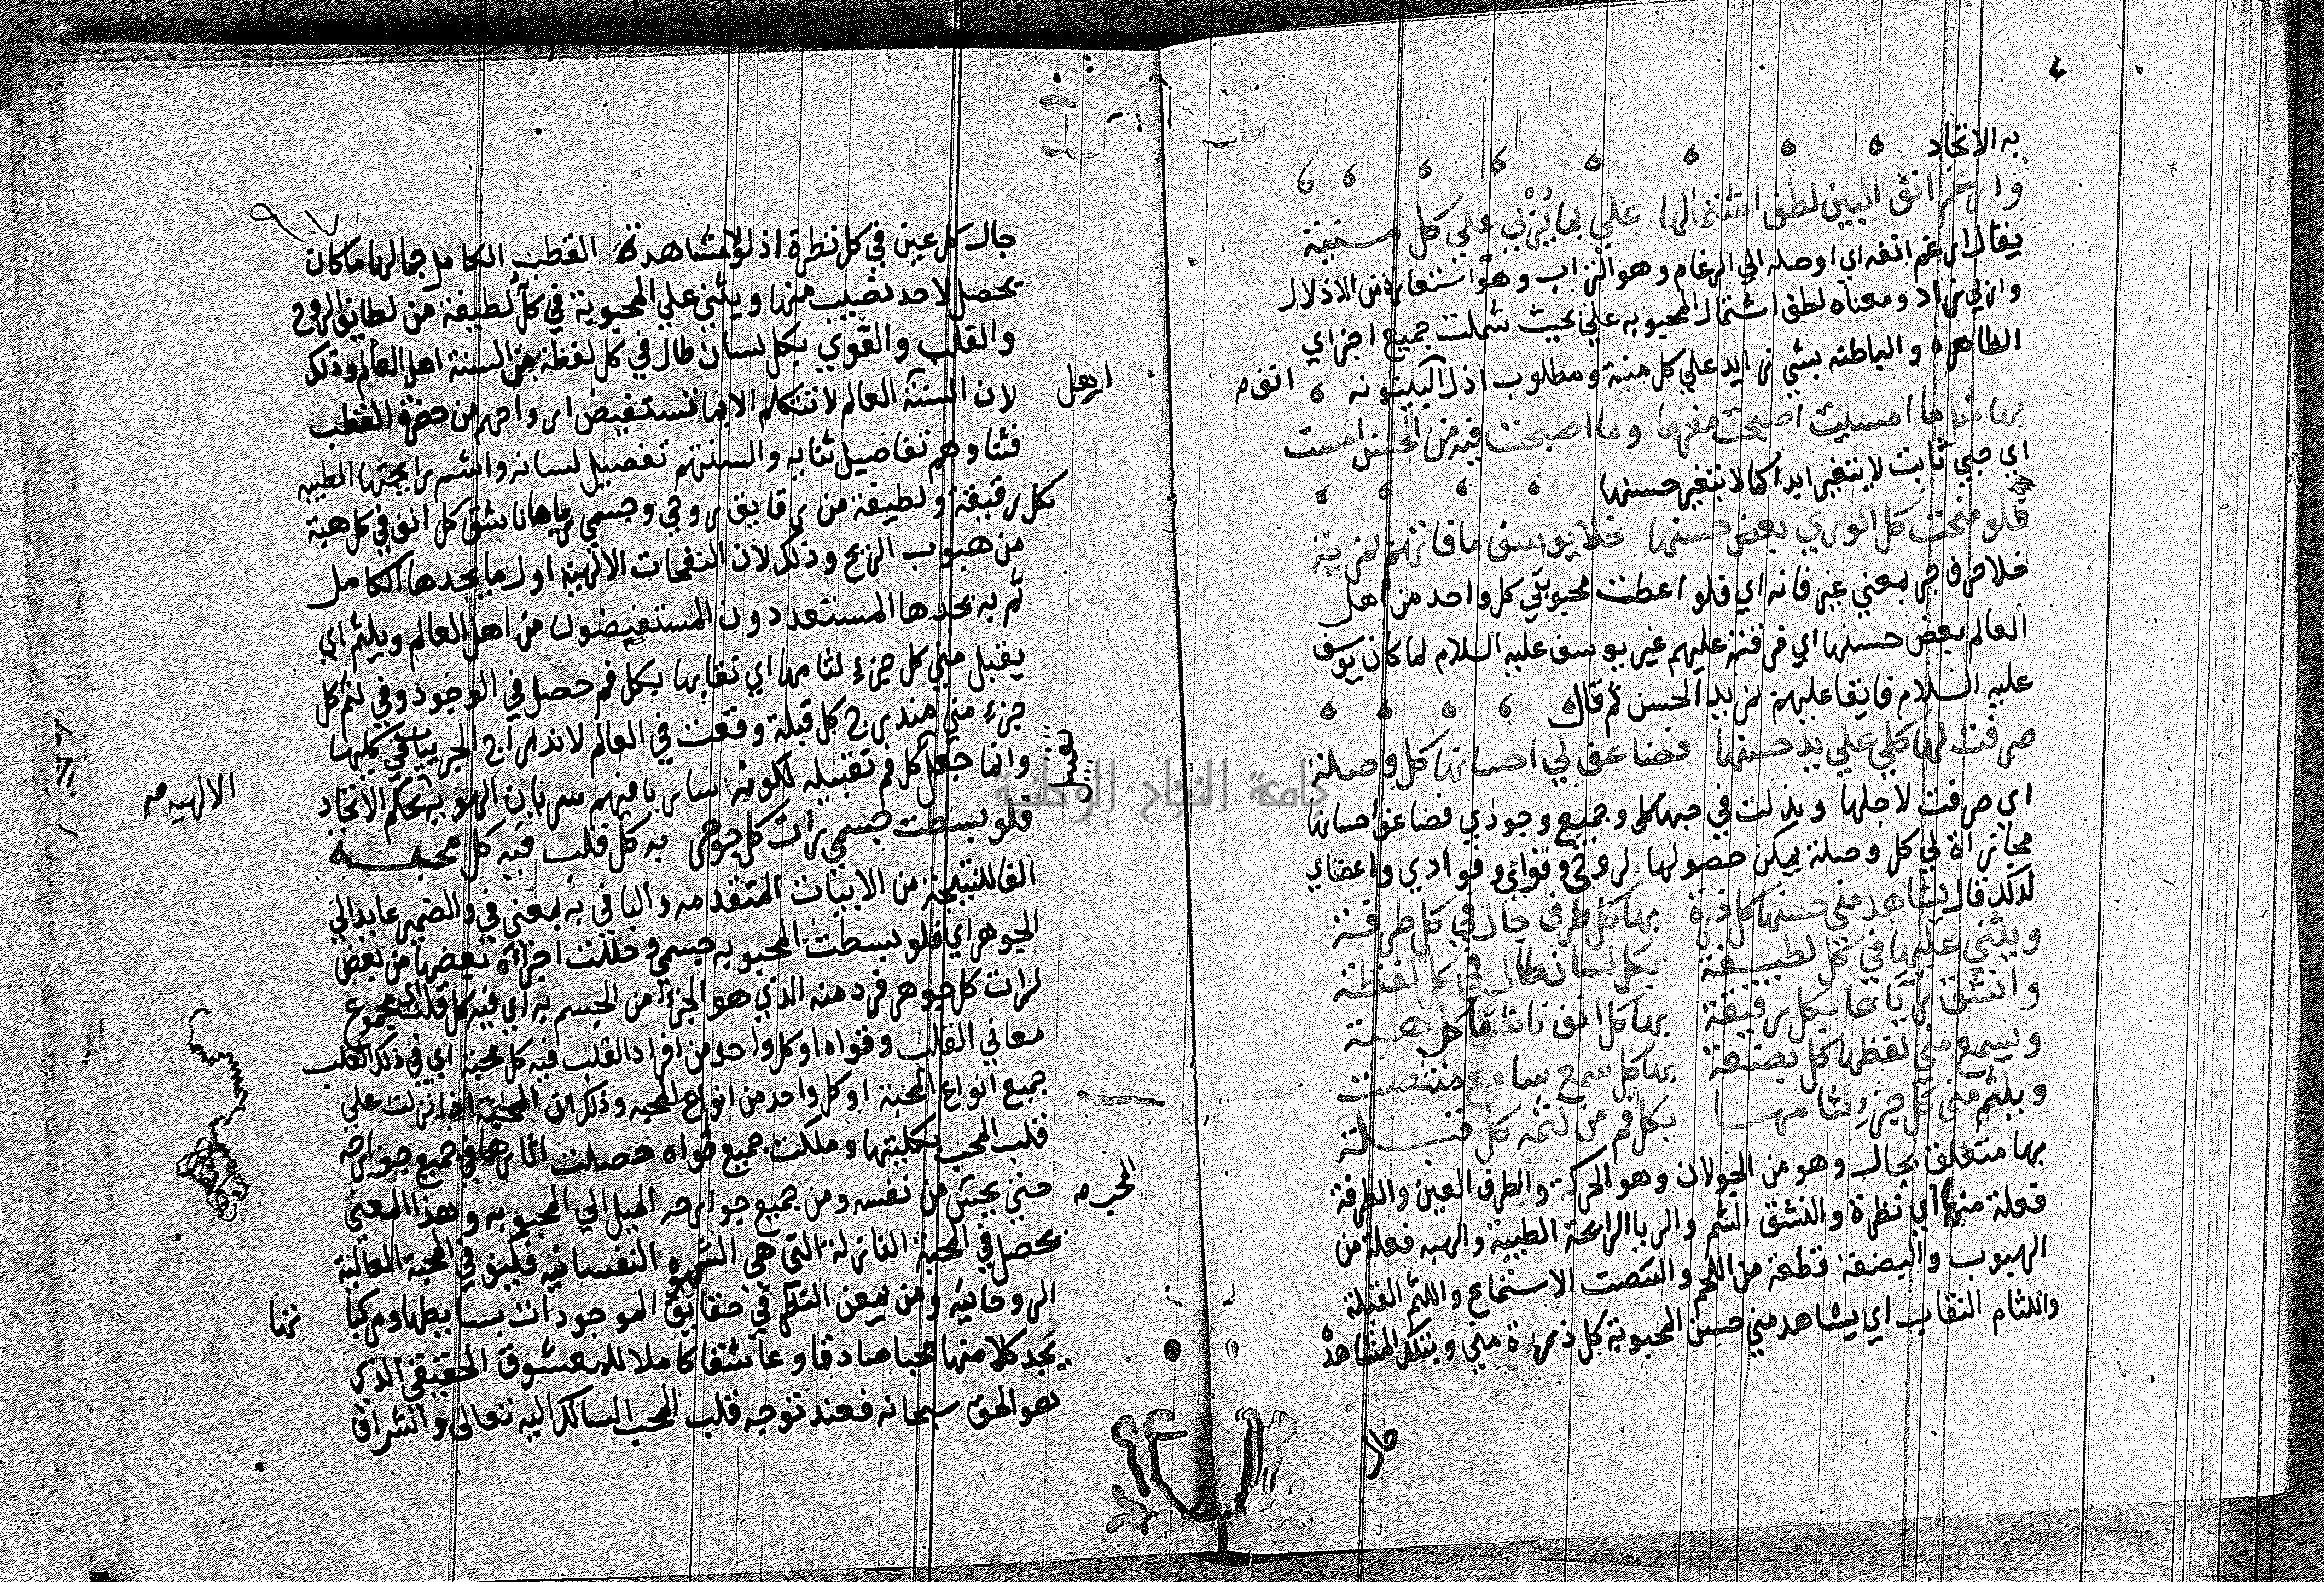 به الاتحاد
وارغم انف البين لطف اشتمالها علي بما يربي علي كل منية
يقال ارغم انفه اي اوصله الي الرغام وهو التراب وهو استعارة من الاذلال
واربي زاد ومعناه لطف اشتمال المحبوبه علي بحيث شملت جميع اجزاي
الظاهره والباطنه بشي زايد علي كل منية ومطلوب اذل البينونه
انف
بها مثل ما امسيت اصبحت مغرما وما اصبحت فيه من الحسن امست
اي حبي ثابت لا يتغير ابدا كما لا يتغير حسنها
فلو منحت كل الوري بعض حسنها خلا يوسف ما فاتهم لمزية
خلا حرف جر بمعني غير فانه اي فلو اعطت محبوبتي كل واحد من اهل
العالم بعض حسنها اي فرقته عليهم غير يوسف عليه السلام لما كان يوسف
عليه السلام فايقا عليهم بمزيد الحسن ثم قال
صرفت لها كلي علي يد حسنها فضاعف لي احسانها كل وصلة
اي صرفت لاجلها وبذلت في حبها كلي وجميع وجودي فضاعف احسانها
مجازاة لي كل وصلة يمكن حصولها لروحي وقواي وفوادي واعضاي
لذلك قال يشاهد مني حسنها كل ذرة بها كل طرف جال في كل طرفة
ويثني عليها في كل لطيفة بكل لسان طال في كل لفظة
وانشق رياها بكل رقيقة بها كل انف ناشق كل هبة
ويسمع مني لفظها كل بضعة بها كل سمع سامع متنصت
ويلثم مني كل جزء لثامها بكل فم من لثمه كل قبلة
بها متعلق بجال وهو من الجولان وهو الحركة والطرف العين والطرفة
فعلة منه اي نظرة والنشق الشم والريا الرايحة الطيبة والهبه فعلة من
الهبوب والبضعة قطعة من اللحم والتنصت الاستماع واللثم القبلة
واللثام النقاب اي يشاهد مني حسن المحبوبة كل ذرة مني وبتلك المشاهدة
جال
٩٧
جال كل عين في كل نظرة اذ لولا مشاهدة القطب الكامل جمالها ما كان
يحصل لاحد نصيب منها ويثني علي المحبوبة في كل لطيفة من لطايف الروح
والقلب والقوي بكل لسان طال في كل لفظة من السنة اهل العالم وذلك
لان السنة العالم لا تتكلم الا بما تستفيض ارواحهم من حضرة القطب
اهل
فثناوهم تفاصيل ثنايه والسنتهم تفصيل لسانه وانشم رايحتها الطيبه
بكل رقيقة ولطيفة من رقايق روحي وجسمي رياها ناشق كل انف في كل هبة
من هبوب الريح وذلك لان النفحات الالهية اول ما يجدها الكامل
ثم به يجدها المستعدون المستفيضون من اهل العالم ويلثم اي
يقبل مني كل جزء لثامها اي نقابها بكل فم حصل في الوجود وفي لثم كل
جزء مني مندرج كل قبلة وقعت في العالم لاندراج الجزييات في كليها
وانما جعل كل فم تقبيله لكونه ساريا فيهم سريان الهويه بحكم الاتحاد
الالهيه صح
فلو بسطت جسمي رات كل جوهر به كل قلب فيه كل محبة
الفا للنتيجة من الابيات المتقدمه والبا في به بمعني في والضمير عايد الي
الجوهر اي فلو بسطت المحبوبه جسمي وحللت اجزاه بعضها من بعض
لرات كل جوهر فرد منه الذي هو الجزء من الجسم به اي فيه كل قلب اي مجموع
معاني القلب وقواه او كل واحد من افراد القلب فيه كل محبة اي في ذلك القلب
جميع انواع المحبة او كل واحد من انواع المحبه وذلك ان المحبة اذا نزلت علي
قلب المحب بكليتها وملكت جميع قواه حصلت اثارها في جميع جوارحه
حتي يحس من نفسه ومن جميع جوارحه الميل الي المحبوبه وهذا المعني
يحصل في المحبة النازلة التي هي الشهوة النفسانيه فكيف في المحبة العالية
الروحانية ومن يمعن النظر في حقايق الموجودات بسايطها ومركبا
تها
يجد كلا منها محبا صادقا وعاشقا كاملا للمعشوق الحقيقي الذي
هو الحق سبحانه فعند توجه قلب المحب السالك اليه تعالي واشراق
جامعة النجاح الوطنية